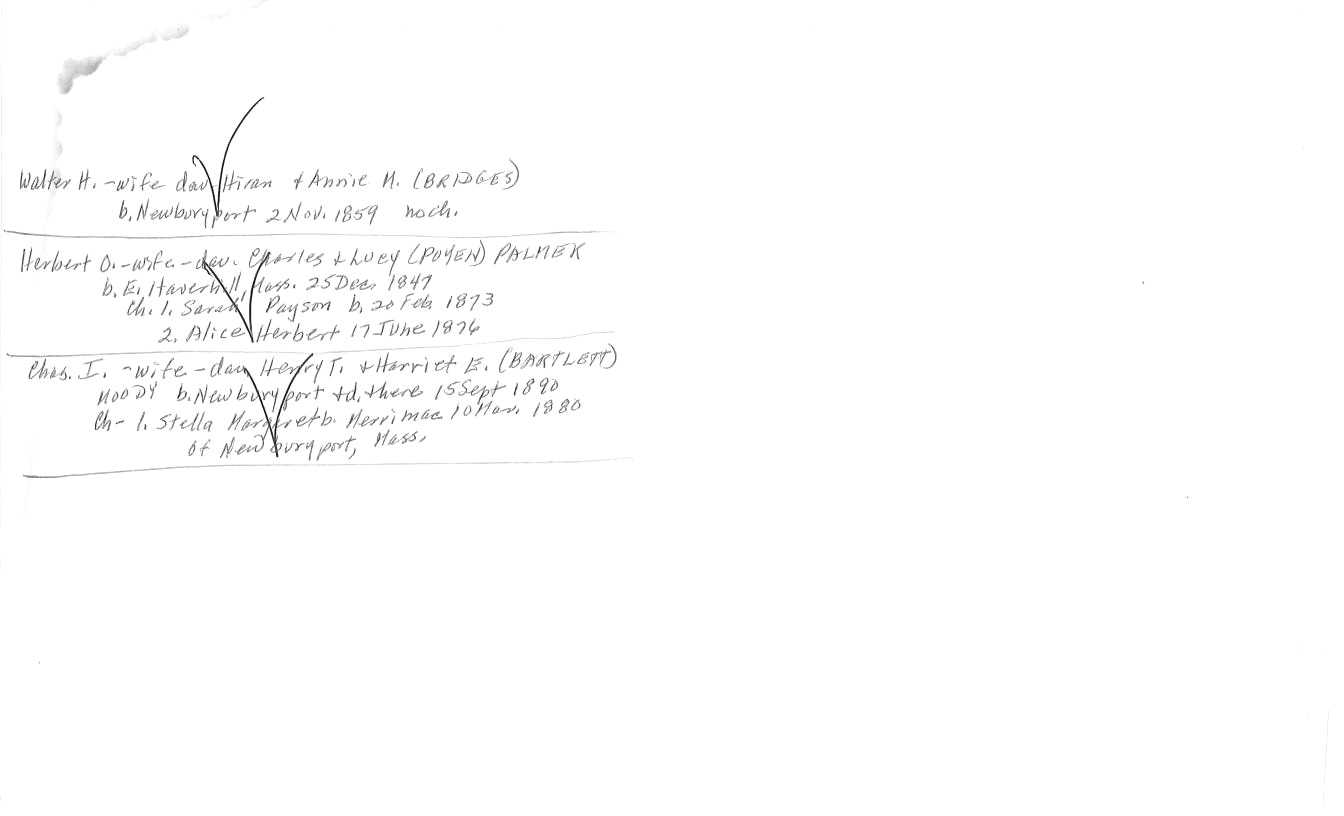 Walter H. - wife dau Hiran & Annie M. (BRIDGES)
b. Newburyport 2 Nov. 1859 no ch.
Herbert O. - wife - dau. Charles & Lucy (POYEN) PALMER
b. E. Haverhill, Mass. 25 Dec. 1847
Ch. 1. Sarah Payson b. 20 Feb. 1873
2. Alice Herbert 17 June 1876
Chas. I. - wife - dau Henry T. & Harriet E. (BARTLETT)
MOODY b. Newburyport & d. there 15 Sept 1890
Ch - 1. Stella Margaret b. Merrimac 10 Mar. 1880
of Newburyport, Mass.